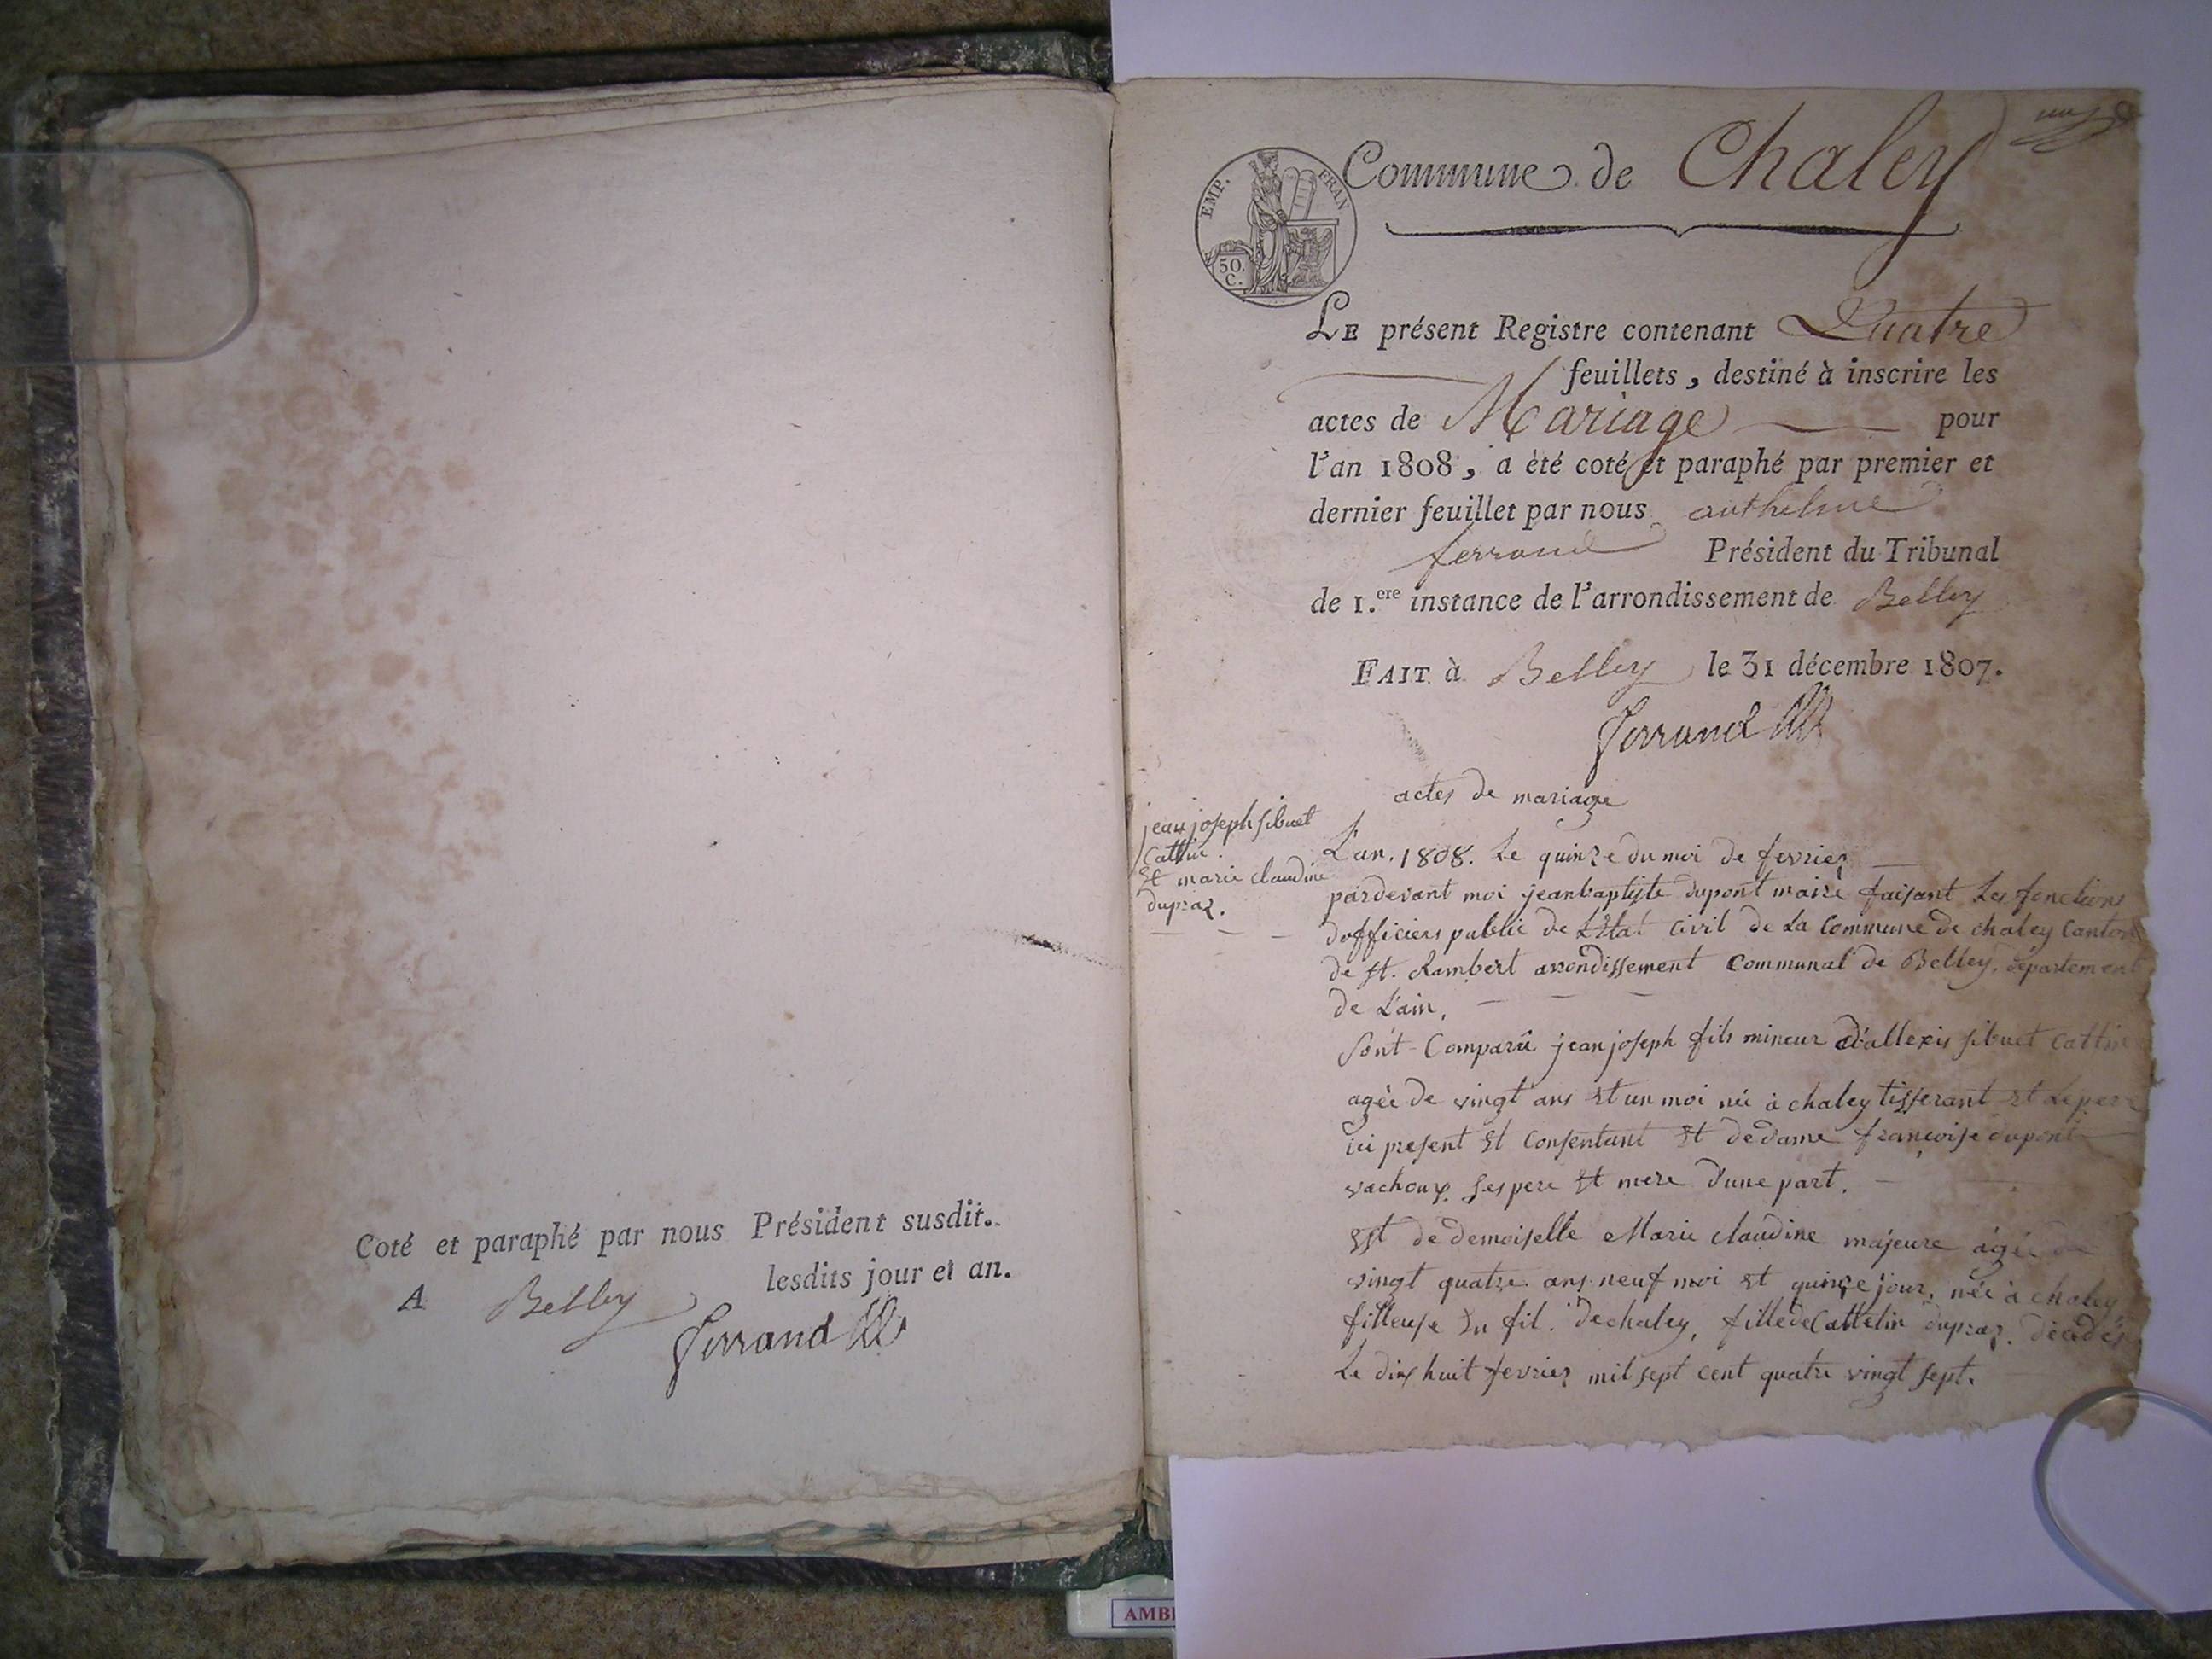 Coté et paraphé par nous Président susdit.
A Belley lesdits jour et an.
Ferrand
EMP. FRAN
50.
C.
Commune de Chaley
LE présent Registre contenant Quatre
feuillets, destiné à inscrire les
actes de Mariage pour
l'an 1808, a été coté et paraphé par premier et
dernier feuillet par nous anthelme
ferrand Président du Tribunal
de 1.ere instance de l'arrondissement de Belley
FAIT à Belley le 31 décembre 1807.
Ferrand
actes de mariage
jean joseph sibuet
Cattin.
Et marie claudine
dupraz.
L'an. 1808. Le quinze du moi de fevrier
pardevant moi jeanbaptiste dupont maire faisant Les fonctions
dofficiers public de L'Etat Civil de La Commune de chaley Canton
de St. Rambert arrondissement Communal de Belley, département
de L'ain,
Sont Comparû jean joseph fils mineur d'allexis sibuet Cattin
agée de vingt ans Et un moi né à chaley tisserant Et Le pere
ici present Et Consentant Et de dame françoise dupont
vachoux ses pere Et mere d'une part.
Et de demoiselle Marie claudine majeure âgée de
vingt quatre ans neuf moi Et quinze jour, née à chaley
filleuse Du fil. de chaley, fille de Cattelin dupraz. décedés
Le dix huit fevrier mil sept cent quatre vingt sept.
AMB